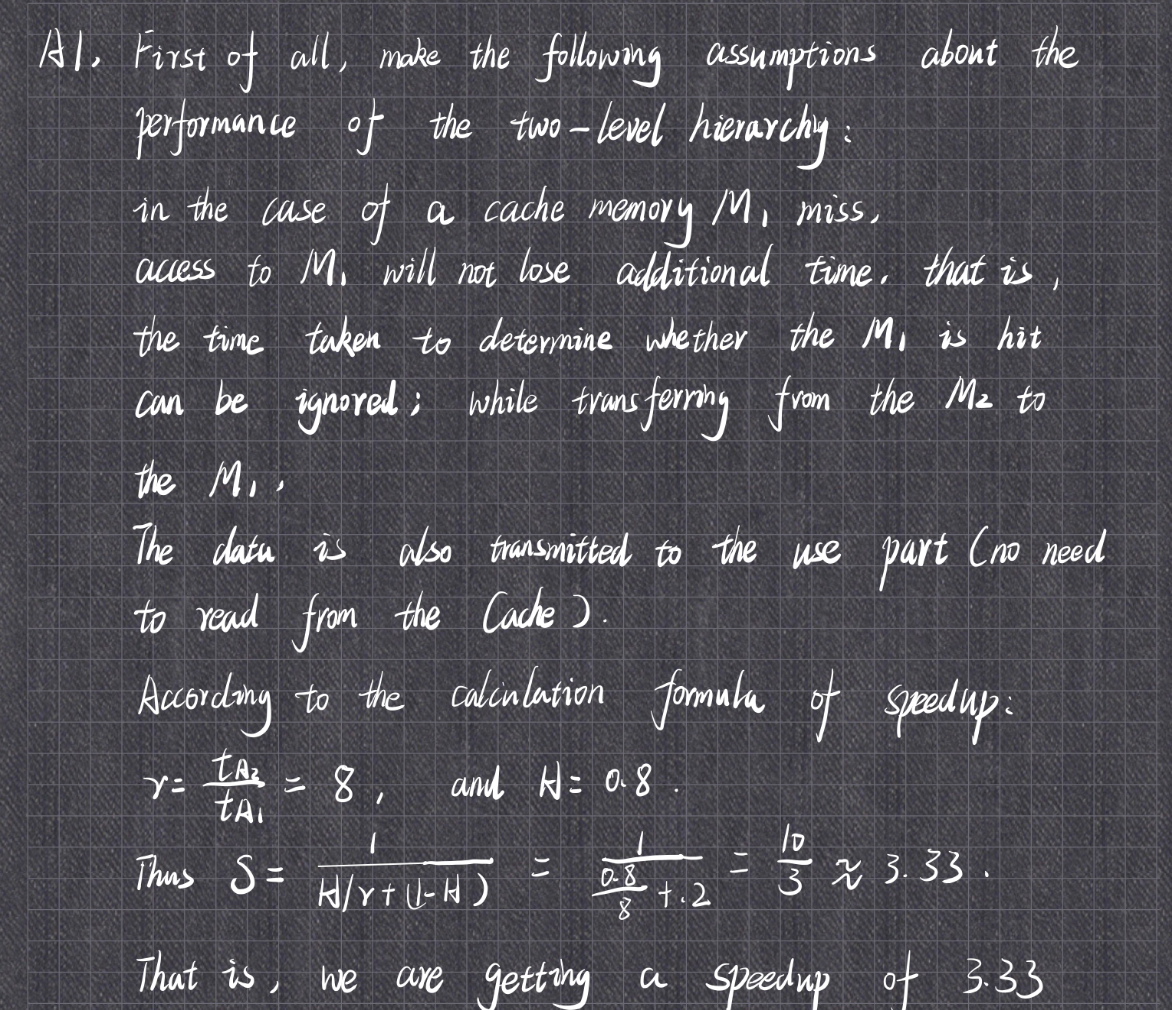 A1. First of all, make the following assumptions about the
performance of the two-level hierarchy:
in the case of a cache memory M₁ miss,
access to M₁ will not lose additional time. that is,
the time taken to determine whether the M₁ is hit
can be ignored; while transferring from the M₂ to
the M₁,
The data is also transmitted to the use part (no need
to read from the Cache).
According to the calculation formula of speedup:
r = tA₂/tA₁ = 8, and H = 0.8.
Thus S = 1/(H/r+(1-H)) = 1/(0.8/8 + .2) = 10/3 ≈ 3.33.
That is, we are getting a speedup of 3.33